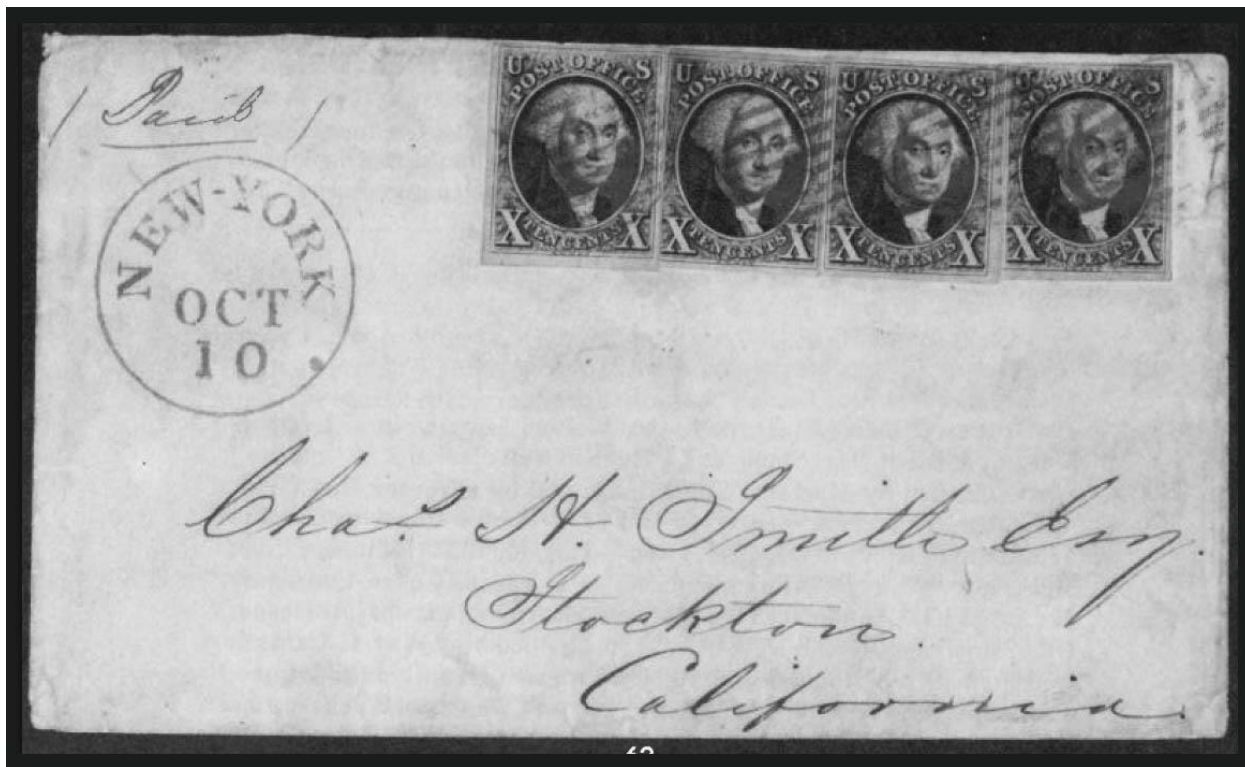 Paid
U POST OFFICE S
X TEN CENTS X
U POST OFFICE S
X TEN CENTS X
U POST OFFICE S
X TEN CENTS X
U POST OFFICE S
X TEN CENTS X
NEW-YORK
OCT
10
Chas. H. Smith Esq.
Stockton.
California.